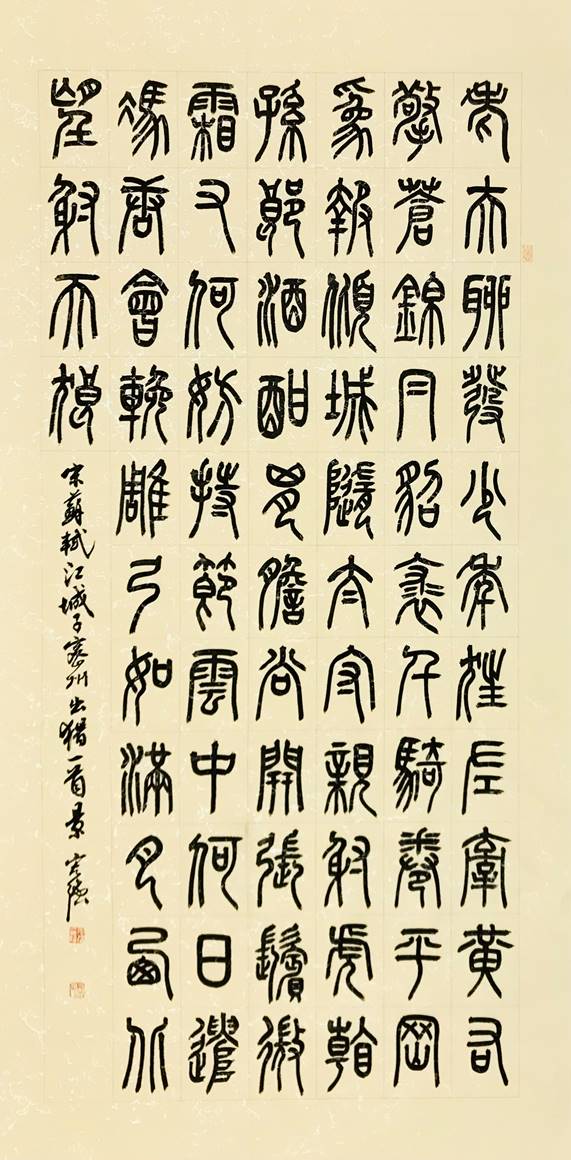 老夫聊發少年狂左牽黃右
擎蒼錦冃貂裘千騎卷平岡
為報傾城隨太守親射虎看
孫郎酒酣胸膽尚開張鬢微
霜又何妨持節雲中何日遣
馮唐會挽雕弓如滿月西北
望射天狼
宋蘇軾江城子密州出猎一首景